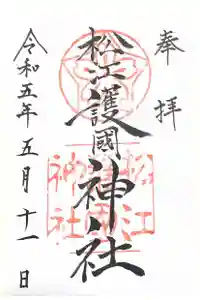 奉拝
松江護國神社
松江
護國
神社
令和五年五月十一日